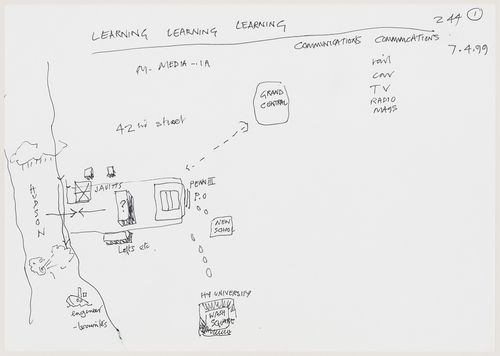 LEARNING LEARNING LEARNING
244 1
COMMUNICATIONS COMMUNICATIONS
7.4.99
rail
car
TV
RADIO
MAGS
M- MEDIA -1A
GRAND
CENTRAL
42nd street
HUDSON
JAVITS
?
PENN III
P.O
NEW
SCHOOL
Lofts etc.
NY UNIVERSITY
WASH
SQUARE
engineer